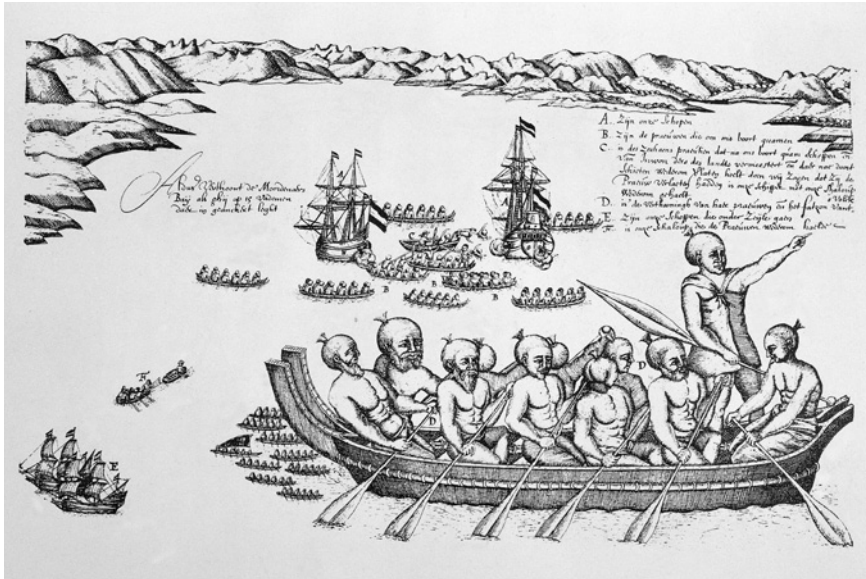 Aldus Verthoont de Moordenaers
Baij als ghij op 15 Vademen
daer in geanckert light
A Zijn onze Schepen
B. Zijn de praeuwen die om ons boort quamen
C. is des Zeehaens dat na ons boort quam scheppen
Van des landts vermeestert en daer nae door't
Schieten Wederom heeft doen wij Zagen dat Zij de
Praeuw Verlaeten hadden is onze schipper met onse
Wederom gehaelt
D. is de Van hare praeuwen en het fatzoen Vant
Volck
E. Zijn onze Scheepen die onder Zeijl gaen
F. is onze die de Praeuwen wederom haelde
A
A
B
B
B
C
D
D
E
F